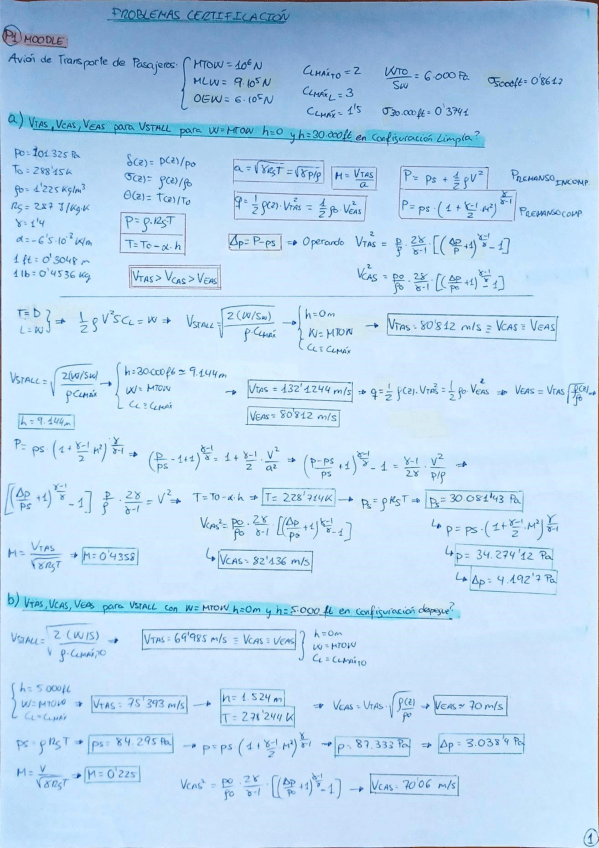 PROBLEMAS CERTIFICACIÓN
P1 MOODLE
Avión de Transporte de Pasajeros: { MTOW = 10⁶ N
MLW = 9·10⁵ N
OEW = 6·10⁵ N
CLMÁXTO = 2
CLMÁXL = 3
CLMÁX = 1'5
WTO/SW = 6.000 Pa
σ5000ft = 0'8617
σ30.000ft = 0'3741
a) VTAS, VCAS, VEAS para VSTALL para W=MTOW h=0 y h=30.000ft en Configuración Limpia?
p0 = 101.325 Pa
T0 = 288'15 K
ρ0 = 1'225 kg/m³
Rg = 287 J/kg·K
γ = 1'4
α = -6'5·10⁻³ K/m
1 ft = 0'3048 m
1 lb = 0'4536 kg
δ(z) = p(z)/p0
σ(z) = ρ(z)/ρ0
θ(z) = T(z)/T0
P = ρ·RgT
T = T0 - α·h
VTAS > VCAS > VEAS
a = √γRgT = √γp/ρ
M = VTAS/a
q = 1/2 ρ(z)·VTAS² = 1/2 ρ0 VEAS²
P = ps + 1/2 ρV² PREMANSO INCOMP.
P = ps·(1 + γ-1/2 M²)^γ/γ-1 PREMANSO COMP
Δp = P - ps ⇒ Operando VTAS² = p/ρ · 2γ/γ-1 · [(Δp/p + 1)^γ-1/γ - 1]
VCAS² = p0/ρ0 · 2γ/γ-1 · [(Δp/p0 + 1)^γ-1/γ - 1]
T=D
L=W } ⇒ 1/2 ρ V² S CL = W → VSTALL = √2(W/SW)/ρ CLMÁX → { h = 0m
W = MTOW
CL = CLMÁX
→ VTAS = 80'812 m/s ≡ VCAS ≡ VEAS
VSTALL = √2(W/SW)/ρ CLMÁX → { h = 30000ft ≃ 9.144m
W = MTOW
CL = CLMÁX
→ VTAS = 132'1244 m/s → q = 1/2 ρ(z)·VTAS² = 1/2 ρ0·VEAS² ⇒ VEAS = VTAS √ρ(z)/ρ0
VEAS = 80'812 m/s
h = 9.144m
P = ps·(1 + γ-1/2 M²)^γ/γ-1 ⇒ (P/ps - 1 + 1)^γ-1/γ = 1 + γ-1/2 · V²/a² ⇒ (P-ps/ps + 1)^γ-1/γ - 1 = γ-1/2γ · V²/p/ρ ⇒
[(Δp/ps + 1)^γ-1/γ - 1] p/ρ · 2γ/γ-1 = V² → T = T0 - α·h ⇒ T = 228'714K → ps = ρRgT → ps = 30.081'43 Pa
VCAS² = p0/ρ0 · 2γ/γ-1 · [(Δp/p0 + 1)^γ-1/γ - 1]
↳ p = ps·(1 + γ-1/2 M²)^γ/γ-1
M = VTAS/√γRgT ⇒ M = 0'4358
↳ VCAS = 82'136 m/s
↳ p = 34.274'12 Pa
↳ Δp = 4.192'7 Pa
b) VTAS, VCAS, VEAS para VSTALL con W=MTOW h=0m y h=5.000ft en configuración despegue?
VSTALL = √2(W/S)/ρ·CLMÁX,TO → VTAS = 69'985 m/s ≡ VCAS ≡ VEAS } h = 0m
W = MTOW
CL = CLMÁXTO
{ h = 5000ft
W = MTOW
CL = CLMÁX
⇒ VTAS = 75'393 m/s → h = 1.524m
T = 278'244 K
⇒ VEAS = VTAS·√ρ(z)/ρ0 → VEAS ≃ 70 m/s
ps = ρRgT → ps = 84.295 Pa → p = ps (1 + γ-1/2 M²)^γ/γ-1 → p = 87.333 Pa ⇒ Δp = 3.038'4 Pa
M = V/√γRgT ⇒ M = 0'225
VCAS² = p0/ρ0 · 2γ/γ-1 · [(Δp/p0 + 1)^γ-1/γ - 1] → VCAS = 70'06 m/s
1